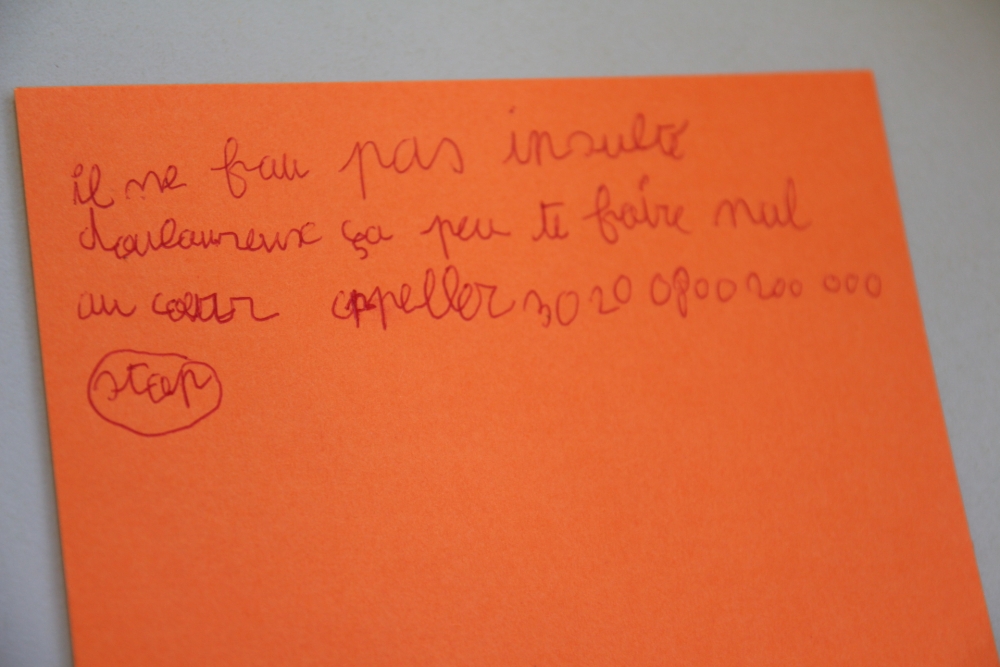 il ne fau pas insulte
douloureux ça peu te faire mal
au coeur appeller 30 20 0800 200 000
stop